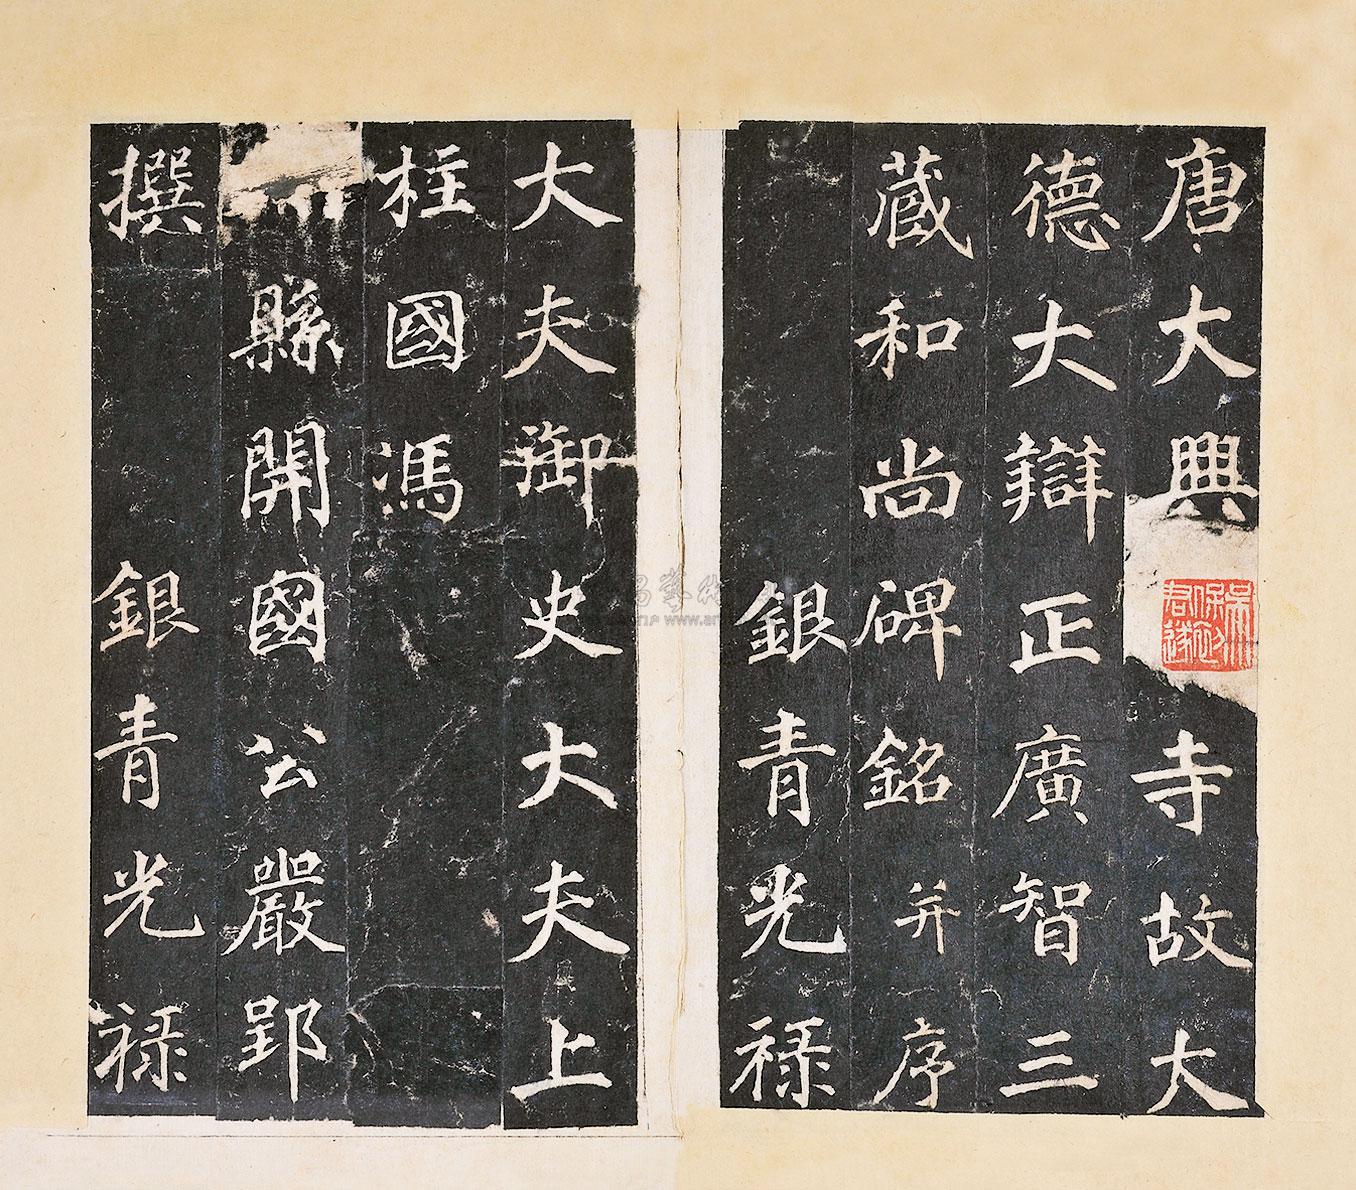 唐大興寺故大
德大辯正廣智三
藏和尚碑銘并序
銀青光祿
大夫御史大夫上
柱國馮
縣開國公嚴郢
撰 銀青光祿